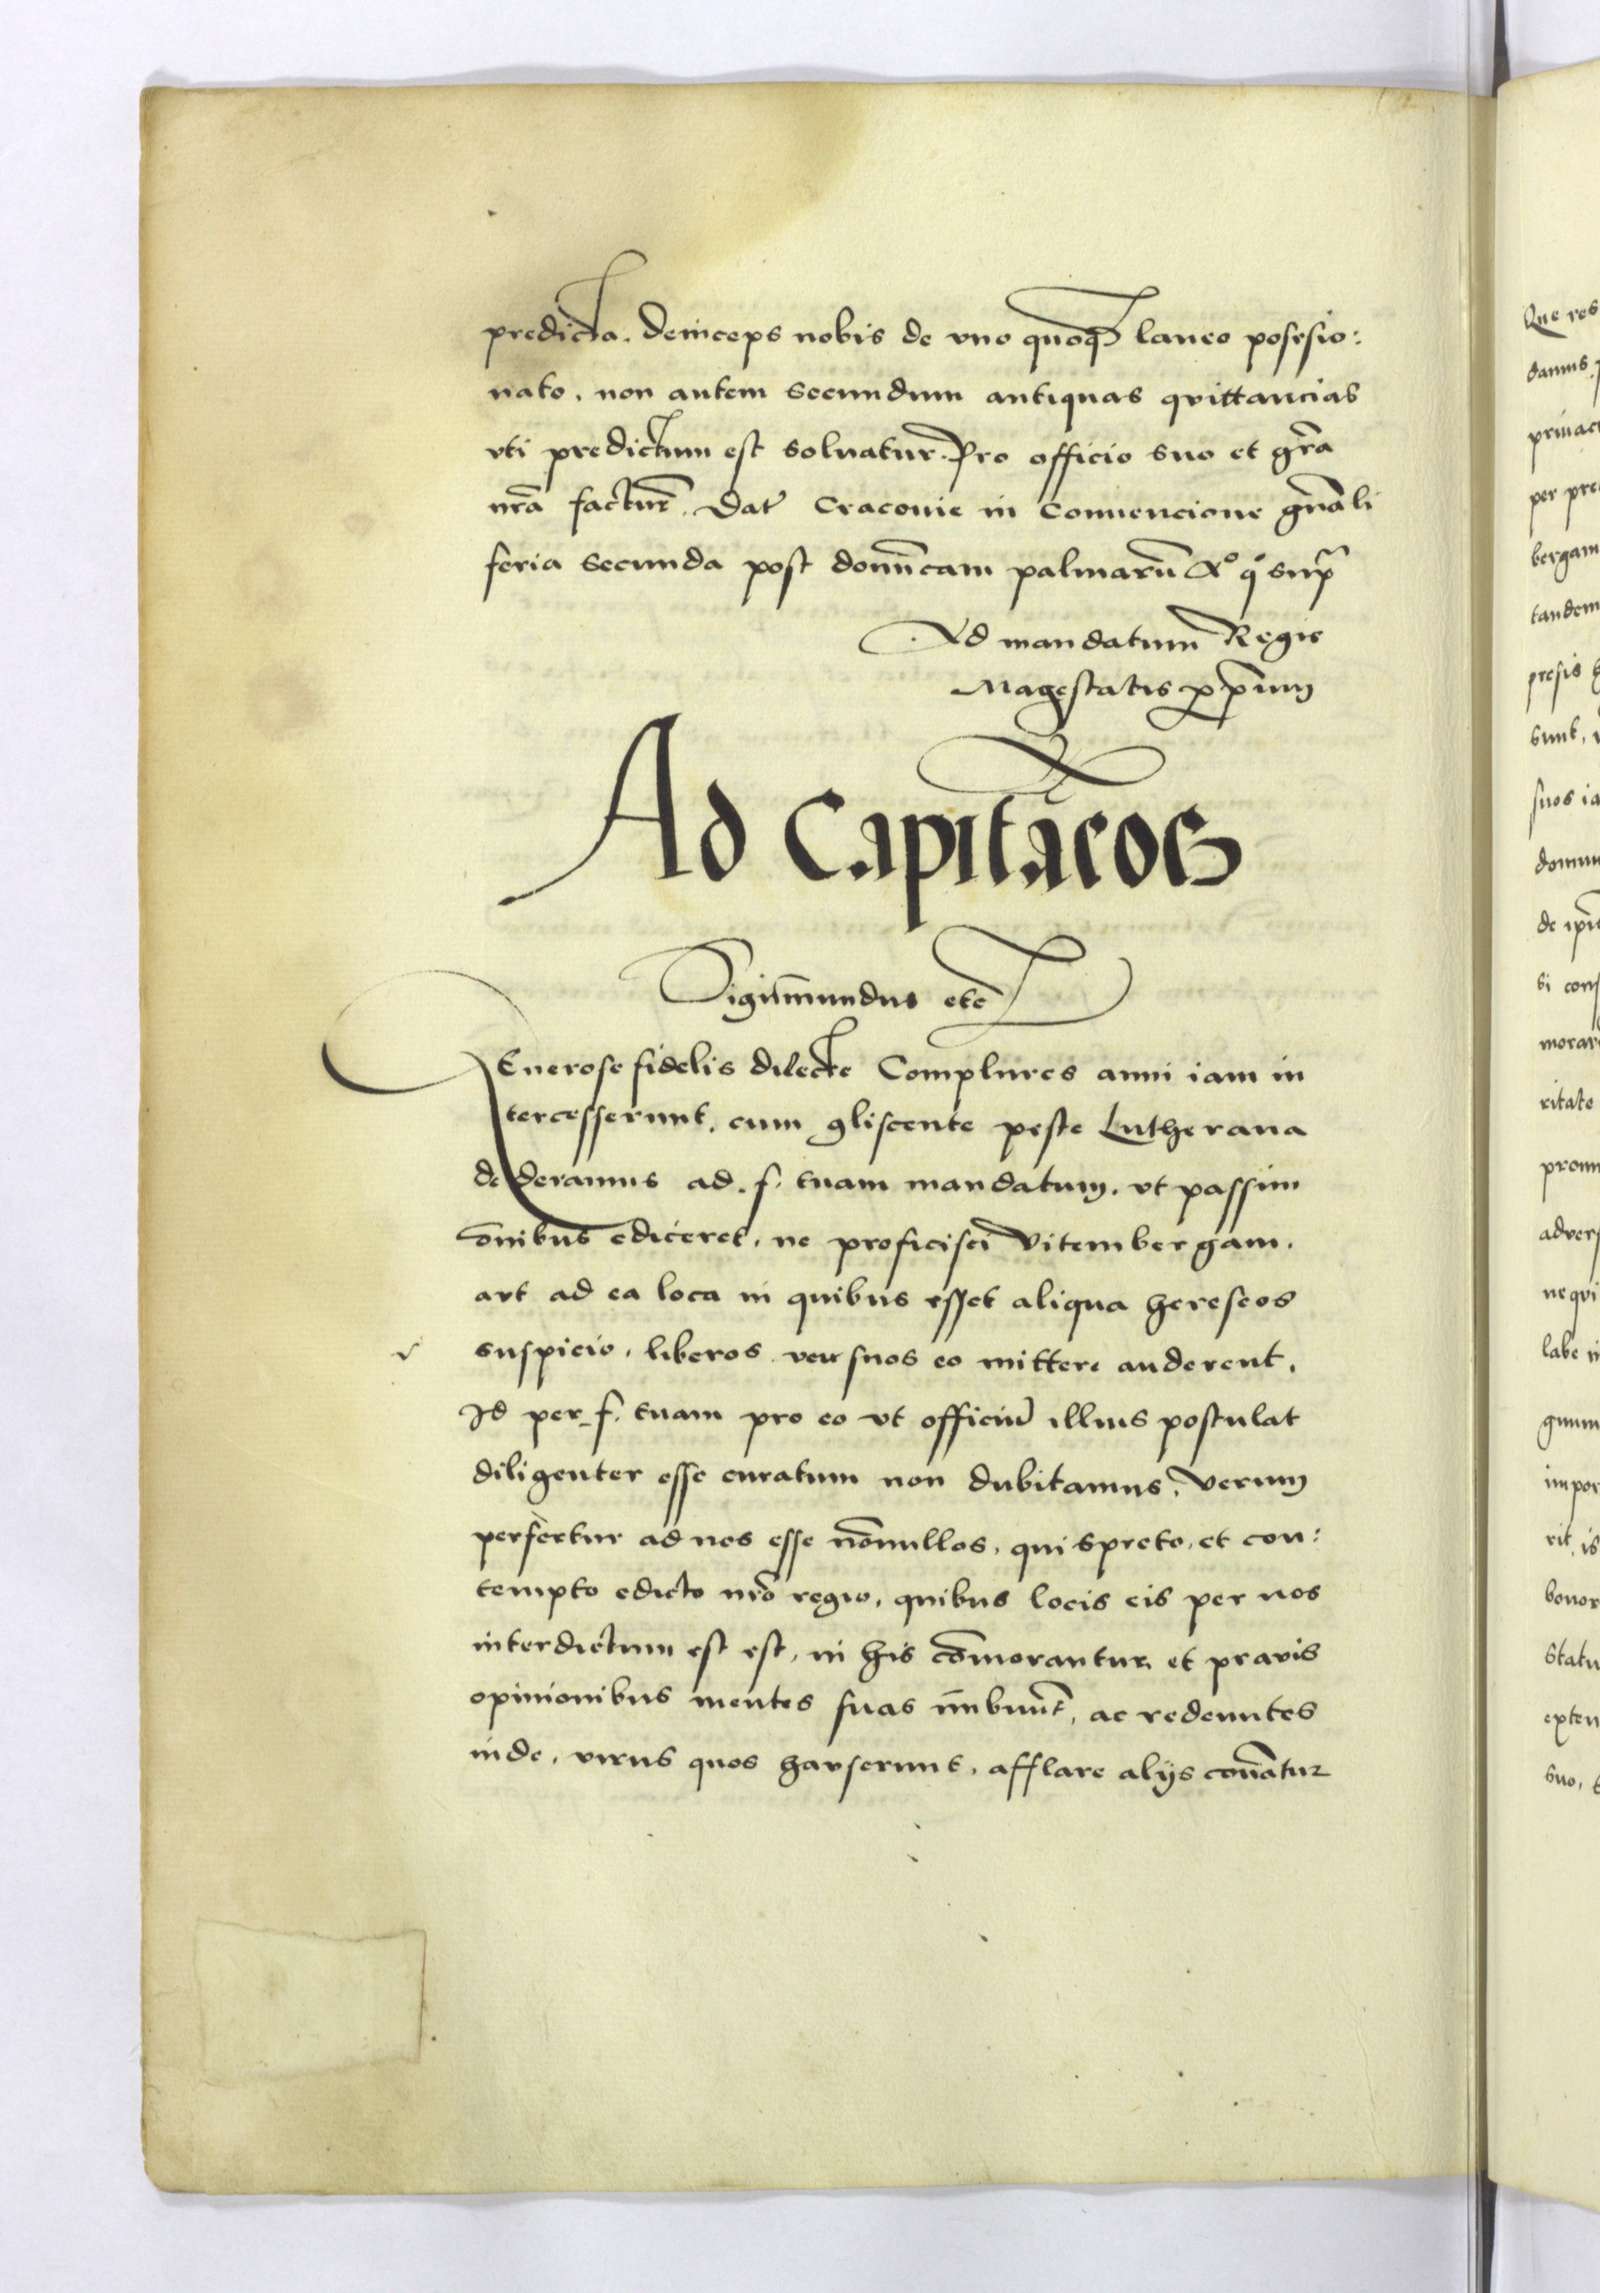 predicta. deinceps nobis de vno quoq₃ laneo posesio:
nato. non autem secundum antiquas qvittancias
vti predictum est soluatur. Pro officio suo et grã
nrã facturꝰ. Dat̃ Cracouie in Conuencione gñali
feria secunda post dominicam palmarũ Aº qº supª
Ad mandatum Regie
Magestatis ꝓpriũ
Ad Capitaneos
Sigismundus etc̃
Generose fidelis dilecte Complures anni iam in
tercesserunt, cum gliscente peste Lutherana
dederamus ad. f. tuam mandatum. vt passim
õnibus ediceret, ne proficisci Vitembergam.
avt ad ea loca in quibus esset aliqua hereseos
suspicio, liberos veu suos eo mittere auderent.
Id per f. tuam pro eo vt officiũ illius postulat
diligenter esse curatum non dubitamus, Verum
perfertur ad nos esse nõnullos, qui spreto, et con:
tempto edicto nrõ regio, quibus locis eis per nos
interdictum est est, in his cõmorantur et pravis
opinionibus mentes suas imbuũt, ac redeuntes
inde, virus quos havserunt, afflare alijs conãtur
Que res
damus.
per pre
bergam
tandem
presis
sunt,
suos ia
si cons
ritate
advers
ne qvi
labe i
impor
rit, is
bonor
statu
exten
suo,